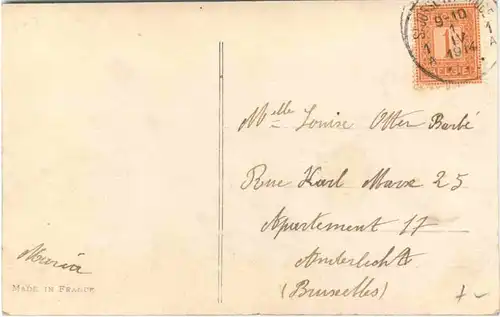 9-10
1
IV
1914
1
A
1
A
1
Mlle Louise Otter Barbé
Rue Karl Marx 25
Apartement 17
Anderlecht
(Bruxelles)
Maria
MADE IN FRANCE